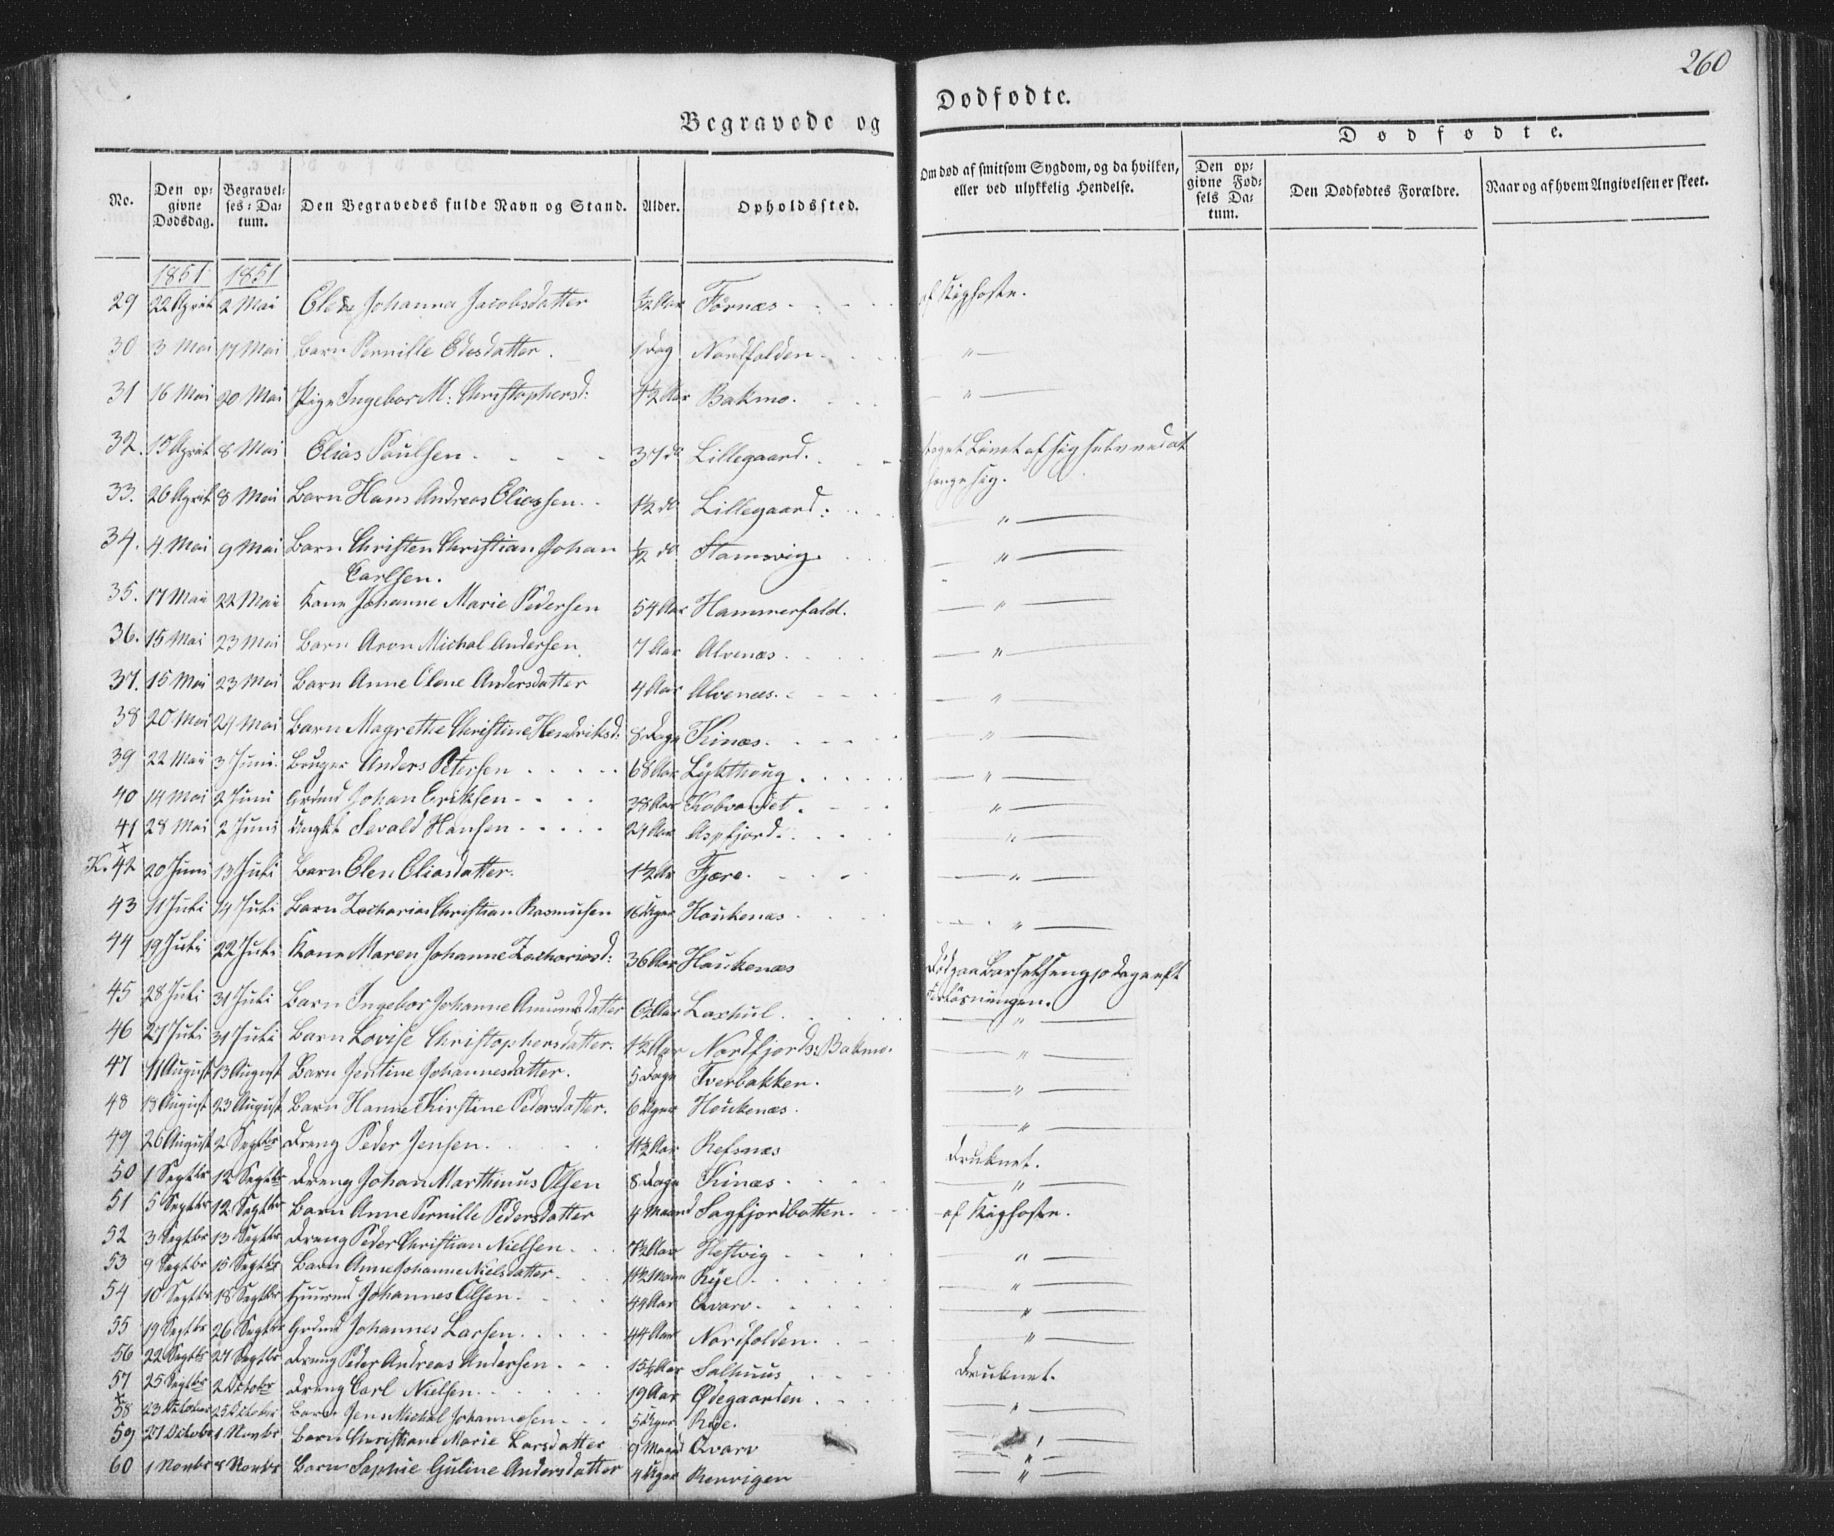 260
Begravede og Dodfodte.
Dodfodte.
No.
Den op-
givne
Dodsdag.
Begravel-
ses-Da-
tum.
Den Begravedes fulde Navn og Stand.
Alder.
Opholdssted.
Om dod af smitsom Sygdom, og da hvilken,
eller ved ulykkelig Hendelse.
Den op-
givne Fod-
sels Da-
tum.
Den Dodfodtes Forældre.
Naar og af hvem Angivelsen er skeet.
1851 1851
29 22 April 2 Mai Johanna Jacobsdatter ½ Aar Fornæs af Kighoste.
30 3 Mai 17 Mai Barn Pernille Edesdatter. 1 Dag Nordfolden - " -
31 16 Mai 20 Mai Pige Ingebor M: Christophersd: 4½ Aar Bakmo. - " -
32. 15 April 8 Mai Elias Paulsen 37 do Lillegaard. taget Livet af sig selv ved at
hænge sig.
33. 26 April 8 Mai Barn Hans Andreas Eliassen 1½ do Lillegaard: - " -
34. 4 Mai 9 Mai Barn Christen Christian Johan
Carlsen. ½ do Stamsvig. - " -
35. 17 Mai 22 Mai Kone Johanne Marie Pedersen 54 Aar Hammerfald. - " -
36. 15 Mai 23 Mai Barn Aron Michal Andersen 7 Aar Alvenæs. - " -
37. 15 Mai 23 Mai Barn Anne Olene Andersdatter 4 Aar Alvenæs. - " -
38 20 Mai 24 Mai Barn Magrethe Christine Hendriksd: 8 Dage Kinæs. - " -
39 22 Mai 3 Juni Bruger Anders Petersen 68 Aar - " -
40 14 Mai 2 Juni Johan Eriksen 38 Aar Kobvandet. - " -
41 28 Mai 2 Juni Ungkl Sevald Hansen 24 Aar Aspfjord. - " -
K. 42 20 Juni 13 Juli Barn Elen Eliasdatter. 1½ Aar Fjære. - " -
43 11 Juli 14 Juli Barn Zacharias Christian Rasmusen 16 Uger Houkenæs - " -
44 19 Juli 22 Juli Kone Maren Johanne Zachariasd: 36 Aar Houkenæs Død paa Barselseng 10 Dage eft
Forløsningen.
45 28 Juli 31 Juli Barn Ingebor Johanne Amundsdatter 6½ Aar Laxhul. - " -
46 27 Juli 31 Juli Barn Lovise Christophersdatter. 1½ Aar Nordfjords: Bakmo. - " -
47 11 August 13 August Barn Jentine Johannesdatter. 5 Dage Tverbakken. - " -
48 18 August 23 August Barn Hanne Kirstine Pedersdatter. 6 Uger Houkenæs. - " -
49 26 August 2 Septbr Dreng Peder Jensen. 11½ Aar Refsnæs Druknet.
50 1 Septbr 12 Septbr Dreng Johan Marthinus Olsen 8 Dage Kinæs. - " -
51 5 Septbr 12 Septbr Barn Anne Pernille Pedersdatter 4 Maand Sagfjordbotten. af Kighoste.
52 3 Septbr 13 Septbr Dreng Peder Christian Nielsen 7½ Aar Hestvig - " -
53 9 Septbr 15 Septbr Barn Anne Johanne Nielsdatter 11½ Maan Røje - " -
54 10 Septbr 18 Septbr Huusmd Johannes Olsen 44 Aar Qvarv - " -
55 19 Septbr 26 Septbr Johannes Larsen 44 Aar Nordfolden. - " -
56 22 Septbr 27 Septbr Dreng Peder Andreas Andersen 15½ Aar Salhuus Druknet.
57 25 Septbr 2 Octobr Dreng Carl Nielsen 19 Aar Ødegaarden - " -
58 23 October 25 October Barn Jens Michal Johannesen 5 Uger Røje. - " -
59 27 October 1 Novbr Barn Christiane Marie Larsdatter 9 Maand Qvarv - " -
60 1 Novbr 8 Novbr Barn Sophie Guline Andersdatter 4 Uger Rørvigen - " -